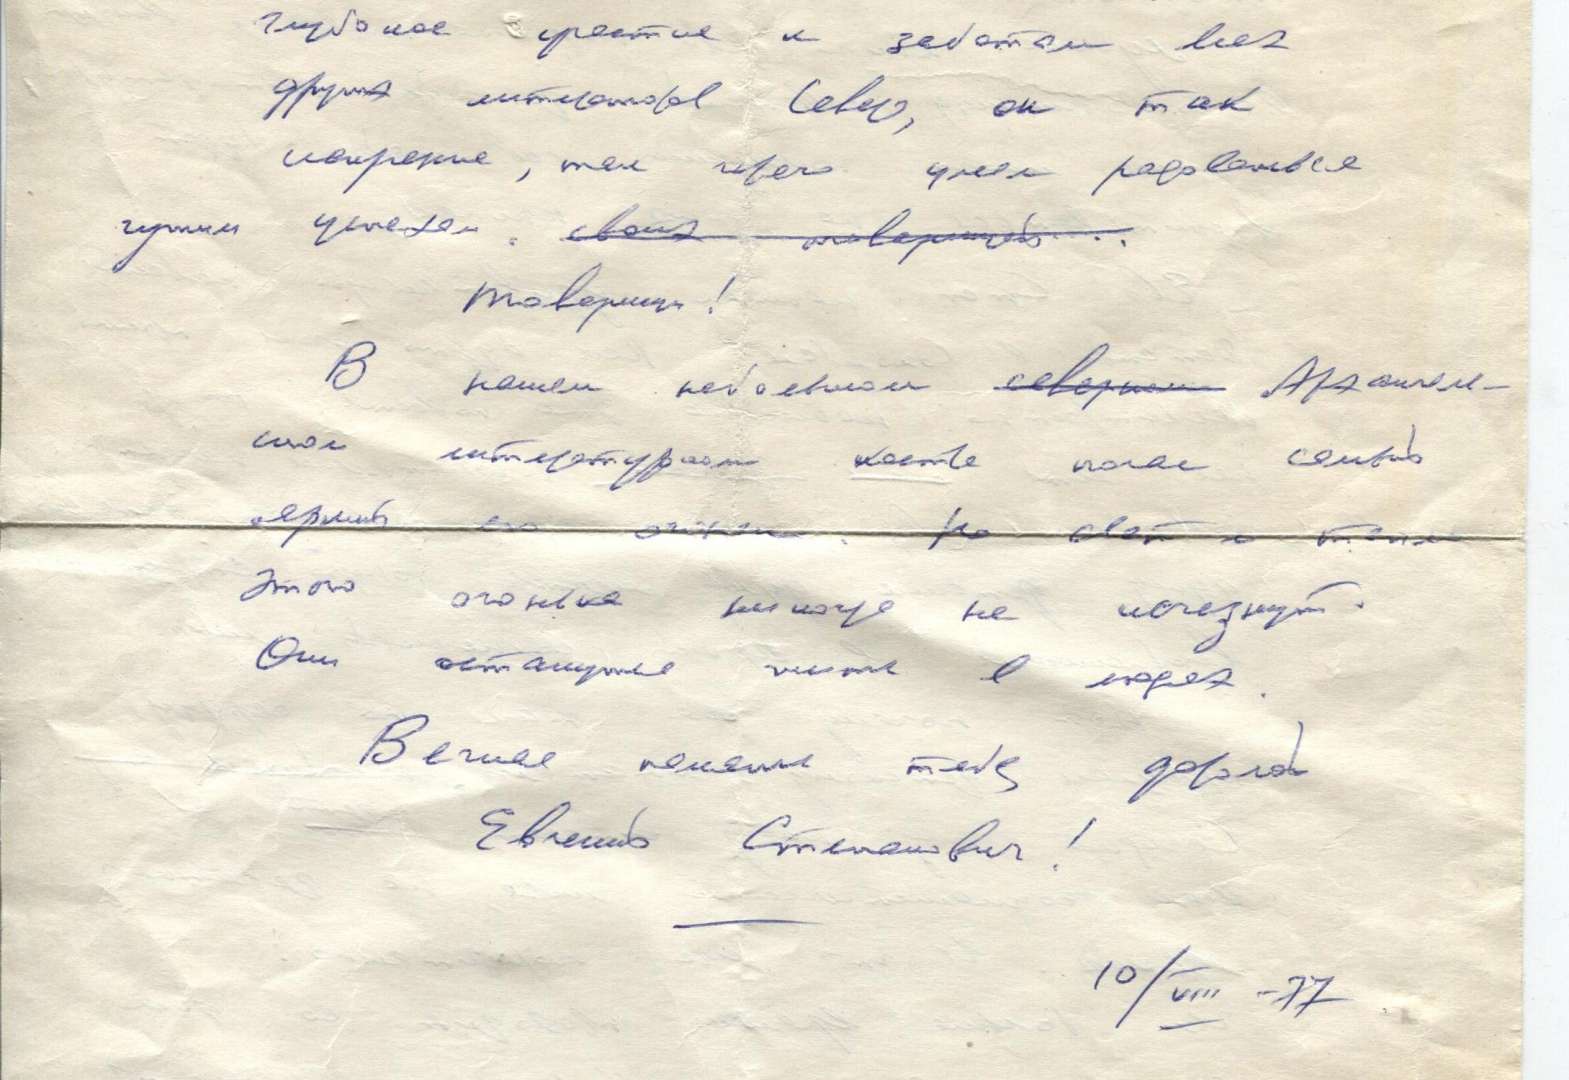 глубокое участие к заботам всех
других литераторов Севера, он так
искренне, так умел радоваться
чужим успехам. своих товарищей...
Товарищи!
В нашем небольшом северном Архангель-
ском литературном костре погас самый
яркий его огонек. Но свет и тепло
этого огонька никогда не исчезнут.
Они останутся жить в людях.
Вечная память тебе, дорогой
Евгений Степанович!
10/VIII -77